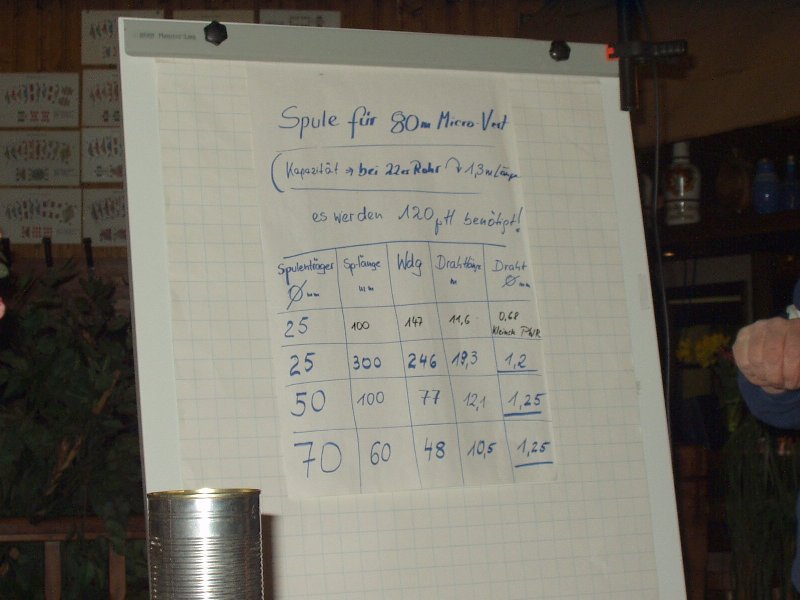 Spule für 80m Micro-Vert
Kapazität → bei 22er Rohr 1,3m Länge
es werden 120µH benötigt!
Spulenträger Sp.länge Wdg Drahtlänge Draht
Ø mm mm m Ø mm
25 100 147 11,6 0,68
kleinste PWR
25 300 246 19,3 1,2
50 100 77 12,1 1,25
70 60 48 10,5 1,25